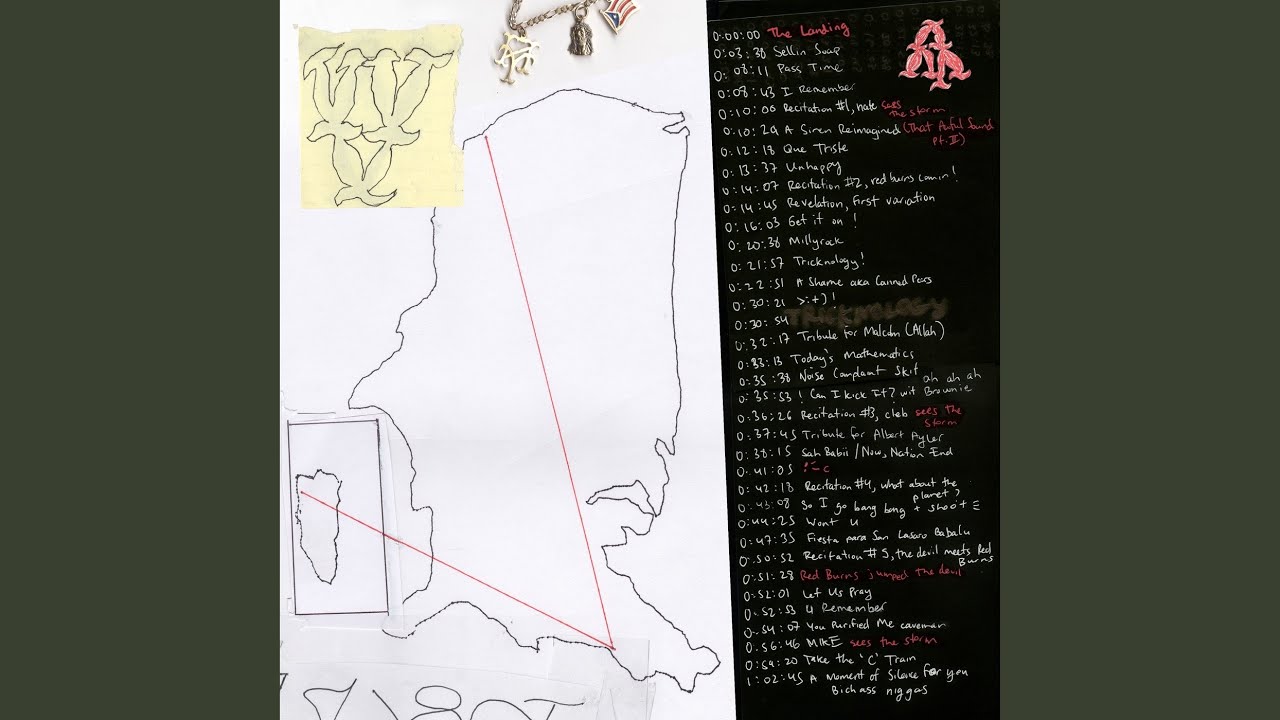 0:00:00 The Landing
0:03:38 Sellin Soap
0:08:11 Pass Time
0:08:43 I Remember
0:10:00 Recitation #1, nate sees the storm
0:10:29 A Siren Reimagined (That Awful Sound pt. II)
0:12:18 Que Triste
0:13:37 Unhappy
0:14:07 Recitation #2, red burns comin!
0:14:45 Revelation, First variation
0:16:03 Get it on!
0:20:38 Millyrock
0:21:57 Tricknology!
0:22:51 A Shame aka Canned Pears
0:30:21 >:+)!
0:30:54 TRICKNOLOGY
0:32:17 Tribute for Malcolm (Allah)
0:33:13 Today's Mathematics
0:35:38 Noise Complaint Skit
0:35:53 ! Can I kick It? wit Brownie ah ah ah
0:36:26 Recitation #3, cleb sees the storm
0:37:45 Tribute for Albert Ayler
0:38:15 Sah Babii / Now, Nation End
0:41:05 :-c
0:42:18 Recitation #4, what about the planet?
0:43:08 So I go bang bang + shoot
0:44:25 Wont u
0:47:35 Fiesta para San Lasaro Babalu
0:50:52 Recitation #5, the devil meets Red Burns
0:51:28 Red Burns jumped the devil
0:52:01 Let Us Pray
0:52:53 U Remember
0:54:07 You Purified Me caveman
0:56:46 MIKE sees the storm
0:59:20 Take the 'C' Train
1:02:45 A Moment of Silence for you
Bichass niggas